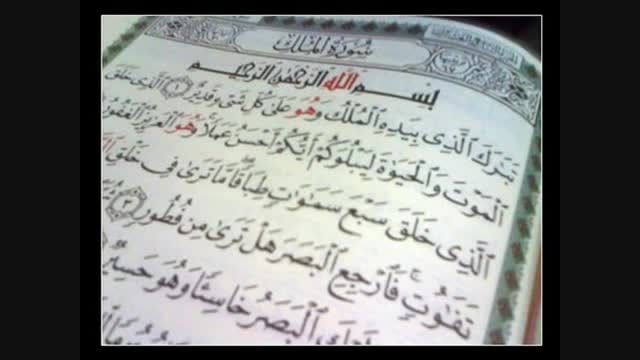 سُورَةُ المُلْكِ
بِسْمِ اللَّهِ الرَّحْمَنِ الرَّحِيمِ
تَبَٰرَكَ ٱلَّذِى بِيَدِهِ ٱلْمُلْكُ وَهُوَ عَلَىٰ كُلِّ شَىْءٍ قَدِيرٌ ١ ٱلَّذِى خَلَقَ
ٱلْمَوْتَ وَٱلْحَيَوٰةَ لِيَبْلُوَكُمْ أَيُّكُمْ أَحْسَنُ عَمَلًا وَهُوَ ٱلْعَزِيزُ ٱلْغَفُورُ
ٱلَّذِى خَلَقَ سَبْعَ سَمَٰوَٰتٍ طِبَاقًا مَّا تَرَىٰ فِى خَلْقِ
تَفَٰوُتٍ فَٱرْجِعِ ٱلْبَصَرَ هَلْ تَرَىٰ مِن فُطُورٍ ٣
ٱلْبَصَرُ خَاسِئًا وَهُوَ حَسِيرٌ